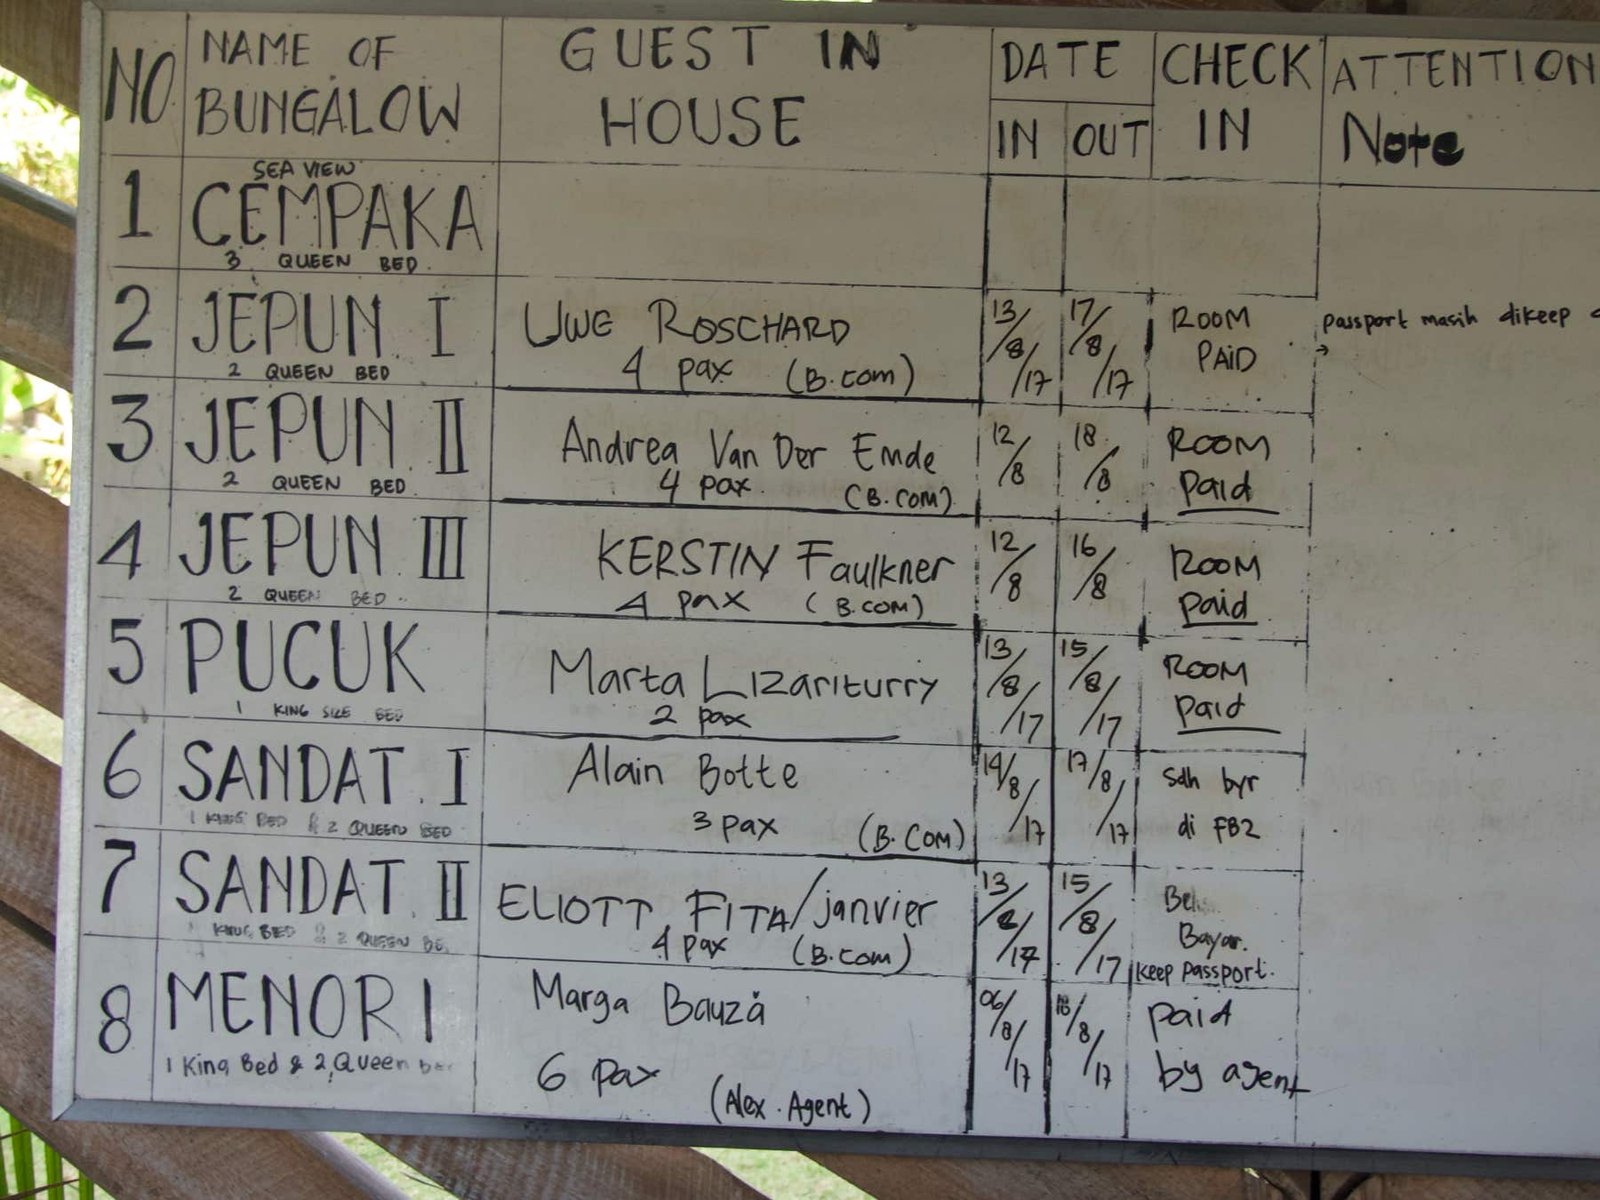 NO NAME OF BUNGALOW GUEST IN HOUSE DATE IN OUT CHECK IN ATTENTION Note
1 SEA VIEW CEMPAKA
3 QUEEN BED
2 JEPUN I UWE ROSCHARD 13/8/17 17/8/17 ROOM PAID passport masih dikeep
2 QUEEN BED 4 pax (B.com)
3 JEPUN II Andrea Van Der Emde 12/8 18/8 ROOM paid
2 QUEEN BED 4 pax (B.com)
4 JEPUN III KERSTIN Faulkner 12/8 16/8 ROOM paid
2 QUEEN BED 4 pax (B.COM)
5 PUCUK Marta Lizariturry 13/8/17 15/8/17 ROOM paid
1 KING SIZE BED 2 pax
6 SANDAT I Alain Botte 14/8/17 17/8/17 Sdh byr di FB2
1 KING BED & 2 QUEEN BED 3 pax (B.Com)
7 SANDAT II ELIOTT FITA/janvier 13/8/17 15/8/17 Bayar. keep passport.
1 KING BED & 2 QUEEN 4 pax (B.com)
8 MENORI Marga Bauzá 06/8/17 18/8/17 paid by agent
1 King Bed & 2 Queen 6 pax (Alex. Agent)